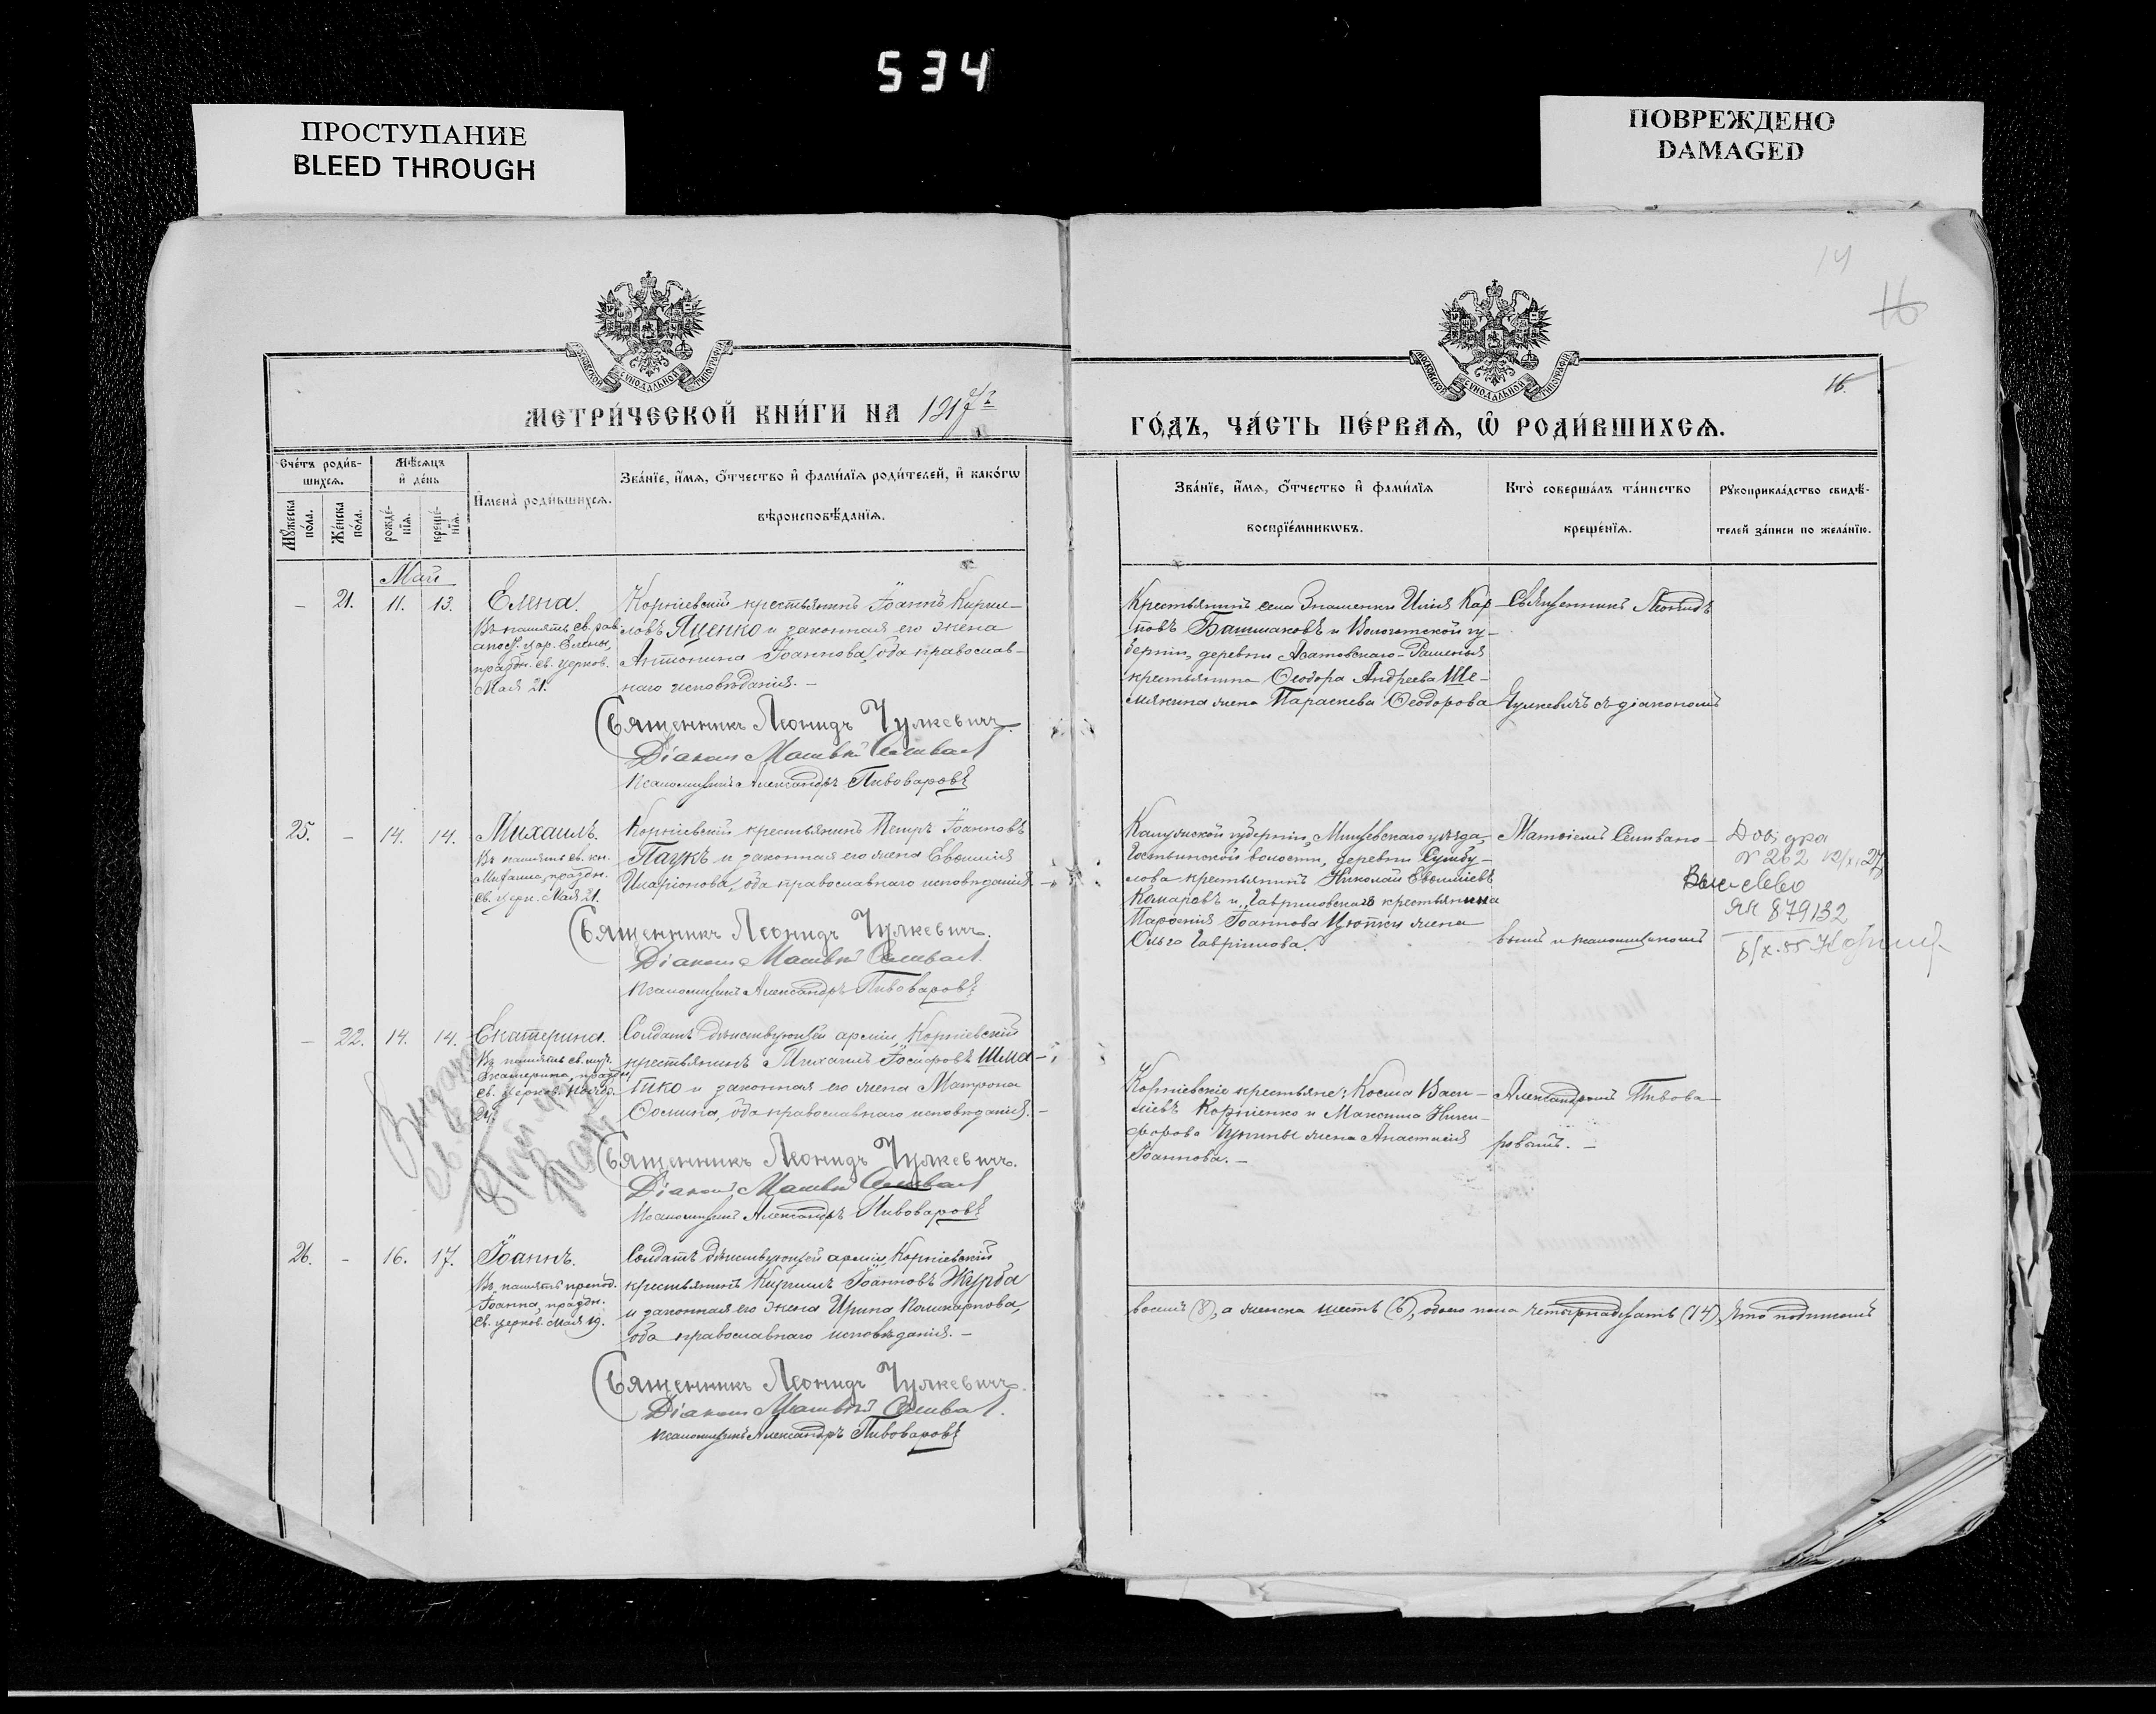 534
ПРОСТУПАНИЕ
BLEED THROUGH
ПОВРЕЖДЕНО
DAMAGED
14
16
16.
МЕТРИ́ЧЕСКОЙ КНИ́ГИ НА 1917 г
ГО́ДЪ, ЧА́СТЬ ПЕ́РВАѦ, Ѡ҆ РОДИ́ВШИХСѦ.
Сче́тъ роди́в-
шихсѧ.
Мѣ́сѧцъ
и҆ де́нь
И҆мена̀ роди́вшихсѧ.
Зва́нїе, и҆́мѧ, ѻ҆́тчество и҆ фами́лїѧ роди́телей, и҆ како́гѡ
вѣроисповѣ́данїѧ.
Мꙋ́жеска
по́ла.
Же́нска
по́ла.
рожде́-
нїѧ.
креще́-
нїѧ.
Зва́нїе, и҆́мѧ, ѻ҆́тчество и҆ фами́лїѧ
воспрїе́мникѡвъ.
Кто̀ соверша́лъ та́инство
креще́нїѧ.
Рꙋкоприкла́дство свидѣ́-
телей за́писи по жела́нїю.
Май
– 21. 11. 13. Елена.
Въ память св. рав.
апост. цар. Елены,
праздн. св. церков.
Мая 21.
Корніевскій крестьянинъ Іоаннъ Кирил-
ловъ Яценко и законная его жена
Антонина Іоаннова, оба православ-
наго исповѣданія. –
Священникъ Леонидъ Чулкевичъ.
Діаконъ Матвѣй Селиванов
Псаломщикъ Александръ Пивоваровъ
Крестьянинъ села Знаменки Илія Кар-
повъ Башмаковъ и Вологотской гу-
берніи, деревни
крестьянина Ѳеодора Андреева Ше-
мякина жена Параскева Ѳеодорова
Священникъ Леонидъ
Чулкевичъ съ діакономъ
25. – 14. 14. Михаилъ.
Въ память св. кн.
Михаила, праздн.
св. церк. Мая 21.
Корніевскій крестьянинъ Петръ Іоанновъ
Пацукъ и законная его жена Евѳимія
Иларіонова, оба православнаго исповѣданія. –
Священникъ Леонидъ Чулкевичъ.
Діаконъ Матвѣй Селиванов
Псаломщикъ Александръ Пивоваровъ
Калужской губерніи, Мещевскаго уѣзда,
волости, деревни
крестьянинъ Николай Евѳиміевъ
Комаровъ и Гавриловскаго крестьянина
Іоаннова жена
Ольга Гавріилова.
Матѳіемъ Селивано-
вымъ и псаломщикомъ
№ 262
ЯК 879132
– 22. 14. 14. Екатерина.
Въ память св. муч.
Екатерины, праздн.
св. церков. Нояб.
24.
Солдатъ дѣйствующей арміи, Корніевскій
крестьянинъ Михаилъ Іосифовъ Шма-
тко и законная его жена Матрона
Ѳомина, оба православнаго исповѣданія. –
Священникъ Леонидъ Чулкевичъ.
Діаконъ Матвѣй Селиванов
Псаломщикъ Александръ Пивоваровъ
Корніевскіе крестьяне: Косма Васи-
ліевъ Корніенко и Максима Ники-
форова жена Анастасія
Іоаннова. –
Александромъ Пивова-
ровымъ. –
26. – 16. 17. Іоаннъ.
Въ память препод.
Іоанна, праздн.
св. церков. Мая 19.
Солдатъ дѣйствующей арміи, Корніевскій
крестьянинъ Кириллъ Іоанновъ Журба
и законная его жена Ирина Поликарпова,
оба православнаго исповѣданія. –
Священникъ Леонидъ Чулкевичъ.
Діаконъ Матвѣй Селиванов
Псаломщикъ Александръ Пивоваровъ
восемь (8), а женска шесть (6), обоего пола четырнадцать (14),